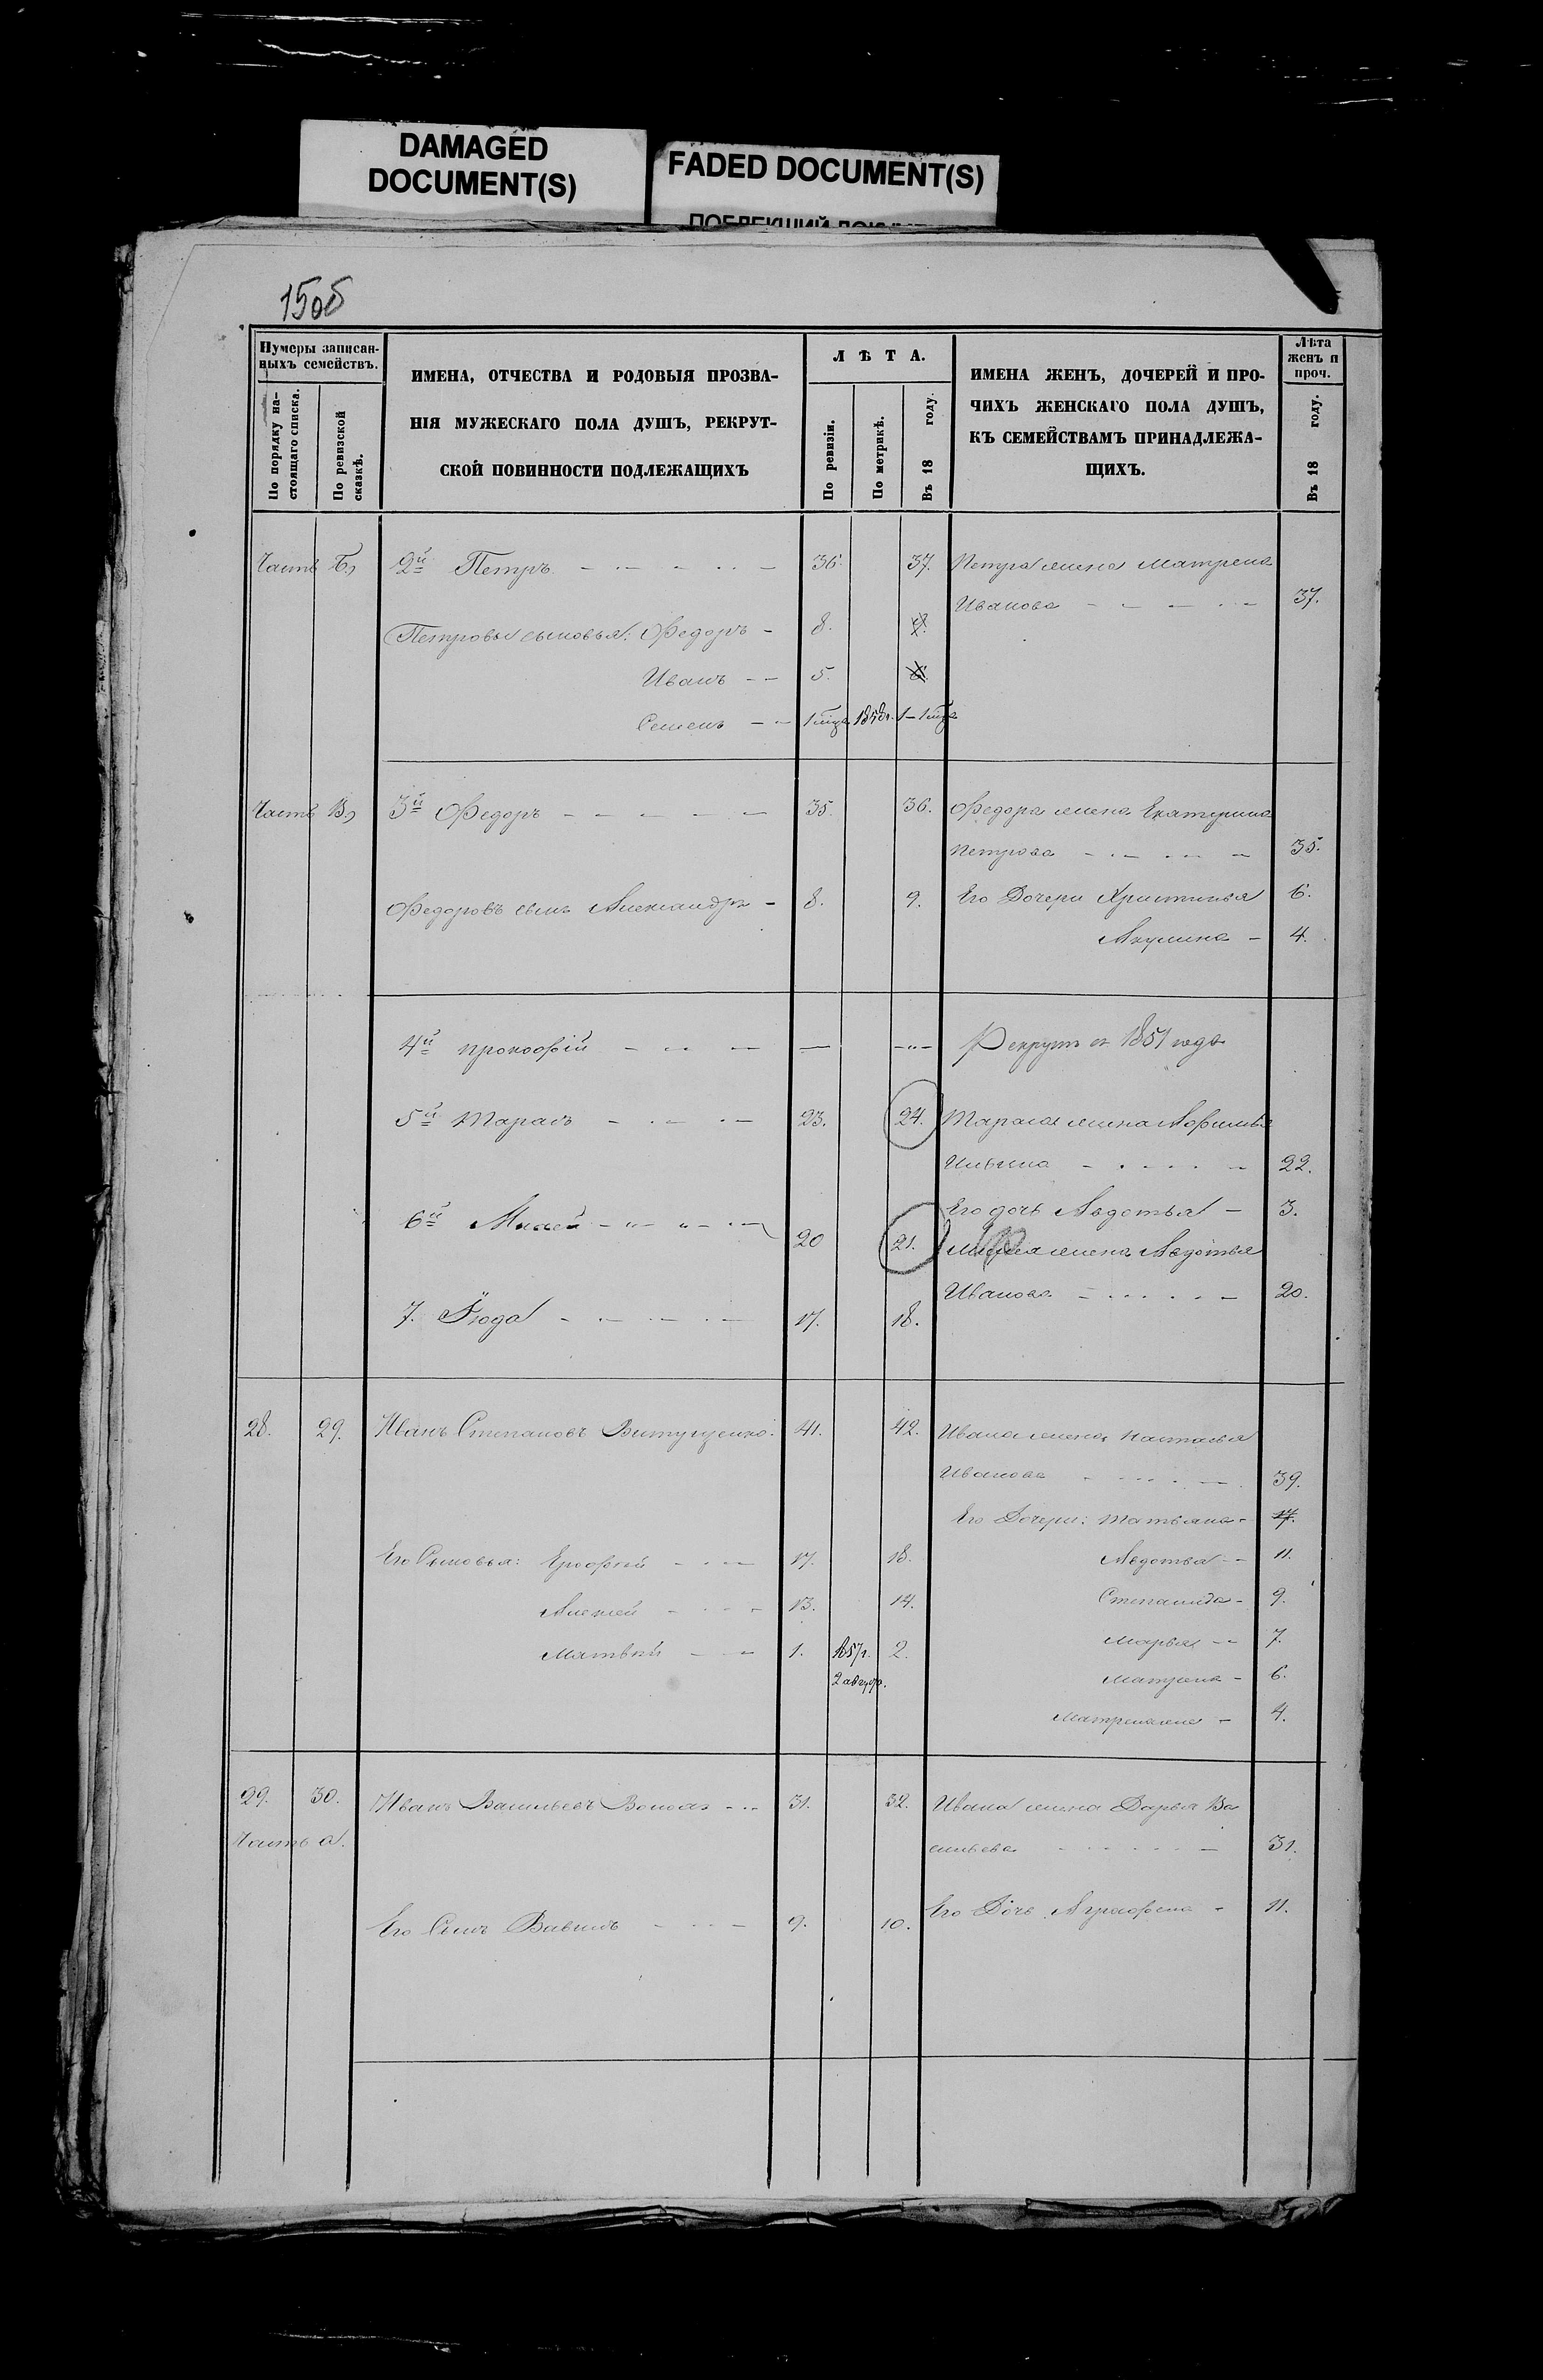 DAMAGED
DOCUMENT(S)
FADED DOCUMENT(S)
150б
Нумеры записан-
ныхъ семействъ.
По порядку на-
стоящаго списка.
По ревизской
сказкѣ.
ИМЕНА, ОТЧЕСТВА И РОДОВЫЯ ПРОЗВА-
НІЯ МУЖЕСКАГО ПОЛА ДУШЪ, РЕКРУТ-
СКОЙ ПОВИННОСТИ ПОДЛЕЖАЩИХЪ
ЛѢТА.
По ревизіи.
По метрикѣ.
Въ 18 году.
ИМЕНА ЖЕНЪ, ДОЧЕРЕЙ И ПРО-
ЧИХЪ ЖЕНСКАГО ПОЛА ДУШЪ,
КЪ СЕМЕЙСТВАМЪ ПРИНАДЛЕЖА-
ЩИХЪ.
Лѣта
женъ и
проч.
Въ 18 году.
Часть Б, 2й Петръ 36. 37. Петра жена Матрена
Иванова 37.
Петровы сыновья: Федоръ 8.
Иванъ 5.
Семенъ 1 1858г. 1
Часть В, 3й Федоръ 35. 36. Федора жена Екатерина
Петрова 35.
Федоровъ сынъ Александръ 8. 9. Его Дочери Христинья 6.
Акулина 4.
4й Прокофій Рекрутъ съ 1851 года
5й Тарасъ 23. 24. Тараса жена
Ильина 22.
Его дочь Авдотья 3.
6й 20 21. жена Авдотья
Иванова 20.
7. 17. 18.
28. 29. Иванъ Степановъ 41. 42. Ивана жена Настасья
Иванова 39.
Его Дочери: Татьяна 17.
Его Сыновья: Ерофей 17. 18. Авдотья 11.
Алексей 13. 14. Степанида 9.
Матвѣй 1. 1857г. 2. Марья 7.
2 Матрена 6.
4.
29. 30. Иванъ Васильевъ 31. 32. Ивана жена Дарья Ва
Часть а. сильева 31.
Его Сынъ 9. 10. Его Дочь 11.